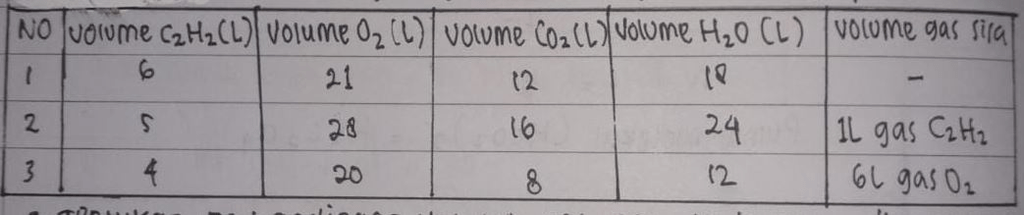 NO volume C2H2(L) volume O2 (L) volume CO2 (L) volume H2O (L) volume gas sisa
1 6 21 12 18 -
2 5 28 16 24 1L gas C2H2
3 4 20 8 12 6L gas O2